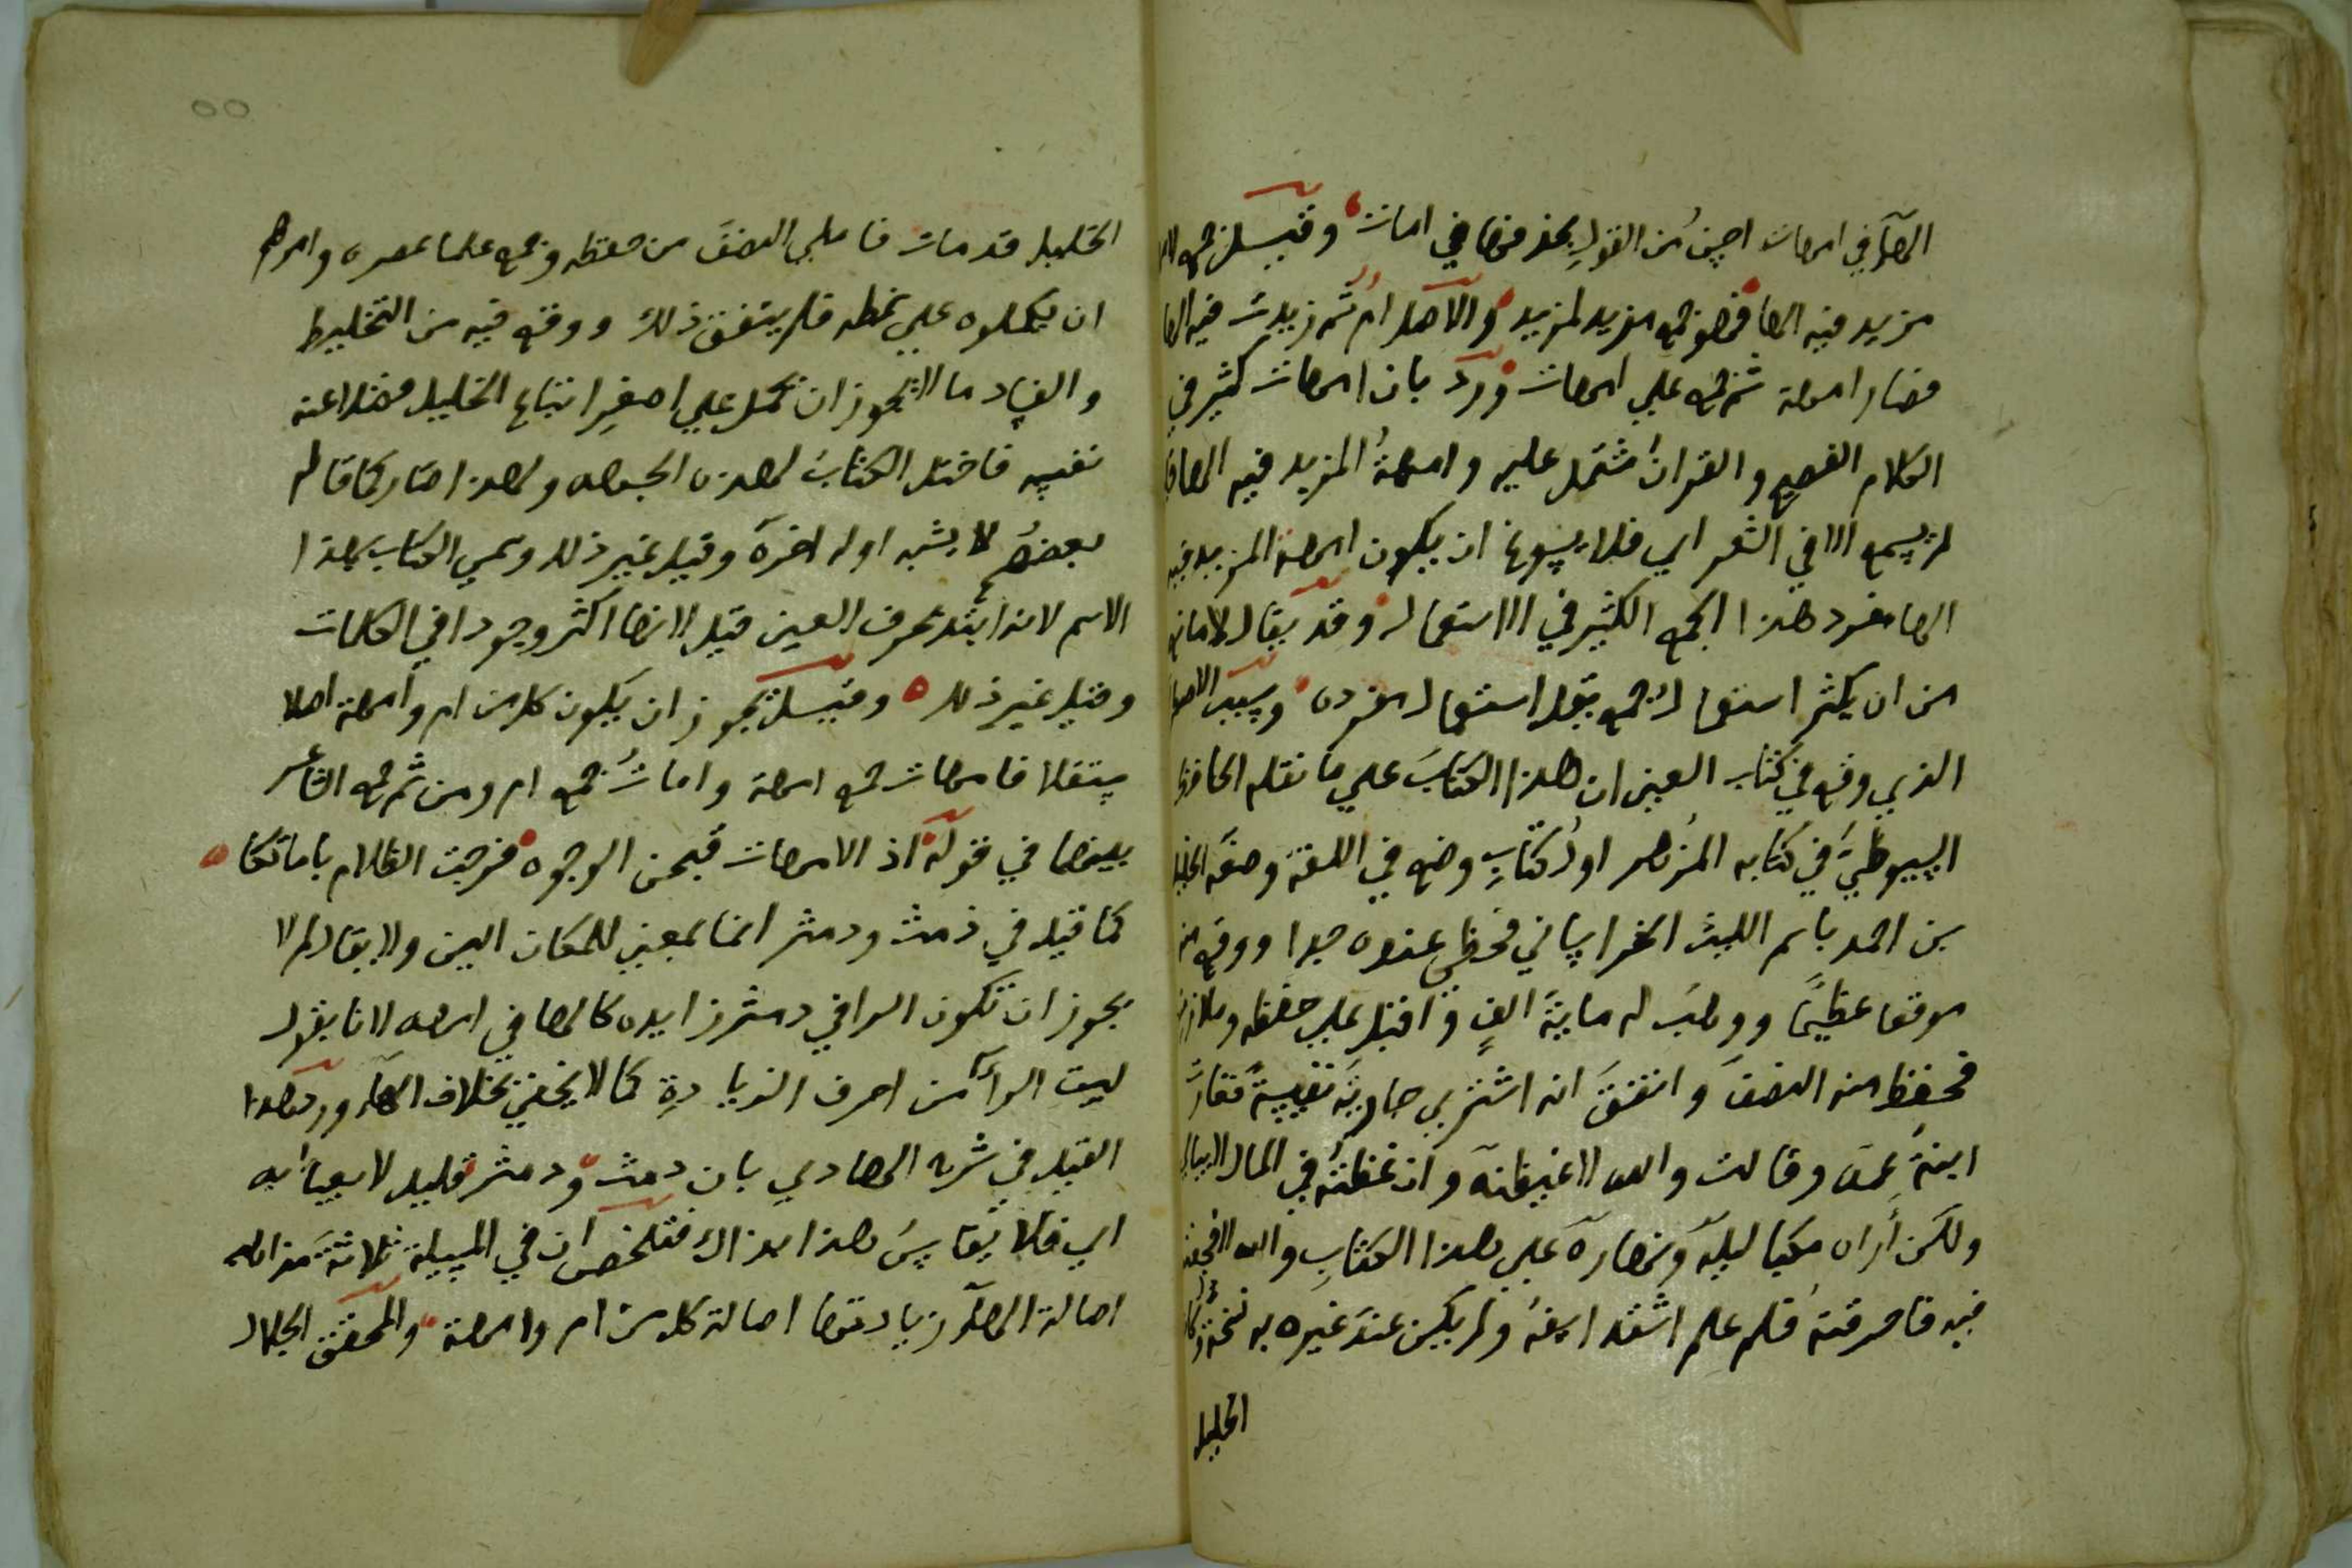 الهآ في امهات احسن من القول بحذفها في امات وقيل جمع لام
مزيد فيه الها فهو جمع مزيد لمزيد والاصل ام ثم زيدت فيه الها
فصار امهة ثم جمع علي امهات ورد بان امهات كثير في
الكلام الفصيح والقران مشتمل عليه وامهة المزيد فيه الها
لم يسمع الا في الشعر اي فلا يسوغ ان يكون امهة المزيد فيه
الها مفرد هذا الجمع الكثير في الاستعمال وقد يقال لا مانع
من ان يكثر استعمال جمع يقل استعمال مفرده وسبب
الذي وقع في كتاب العين ان هذا الكتاب علي ما نقله الحافظ
السيوطي في كتابه المزهر اول كتاب وضع في اللغة وضعه الخليل
بن احمد باسم الليث الخراساني فحظي عنده جدا ووقع منه
موقعا عظيما ووهب له ماية الف واقبل علي حفظه وملازمته
فحفظ منه النصف واتفق انه اشتري جارية نفيسة فغارت
ابنة عمه وقالت والله لاغيظنه وان غظته في المال لا يبالي
ولكن اراه مكبا ليله ونهاره علي هذا الكتاب والله لافجعنه
فيه فاحرقته فلم علم اشتد اسفه ولم يكن عند غيره به نسخة وكان
الخليل
الخليل قد مات فاملي النصف من حفظه وجمع علما عصره وامرهم
ان يكملوه علي نمطه فلم يتفق ذلك ووقع فيه من التخليط
والفساد ما لا يجوز ان يحمل علي اصغر اتباع الخليل فضلا عنه
نفسه فاختل الكتاب لهذه الجهه ولهذا صار كما قاله
بعضهم لا يشبه اوله اخره وقيل غير ذلك وسمي الكتاب بهذا
الاسم لانه ابتدء بحرف العين قيل لانها اكثر وجودا في الكلمات
وقيل غير ذلك وقيل يجوز ان يكون كل من ام وامهة اصلا
مستقلا فامهات جمع امهة وامات جمع ام ومن ثم جمع الشاعر
بينهما في قوله اذ الامهات قبحن الوجوه فرجت الظلام باماتكا
كما قيل في دمث ودمثر انما بمعني للمكان الين ولا يقال لم لا
يجوز ان تكون الرا في دمثر زايده كالها في امهه لانا نقول
ليست الرآ من احرف الزيادة كما لا يخفي بخلاف الهآ ورد هذا
القيل في شرح الهادي بان دمث ودمثر قليل لا يعبأ به
اي فلا يقاس هذا بذاك فتلخص ان في المسيلة ثلاثة مذاهب
اصالة الهآ زيادتها اصالة كل من ام وامهة والمحقق الجلال